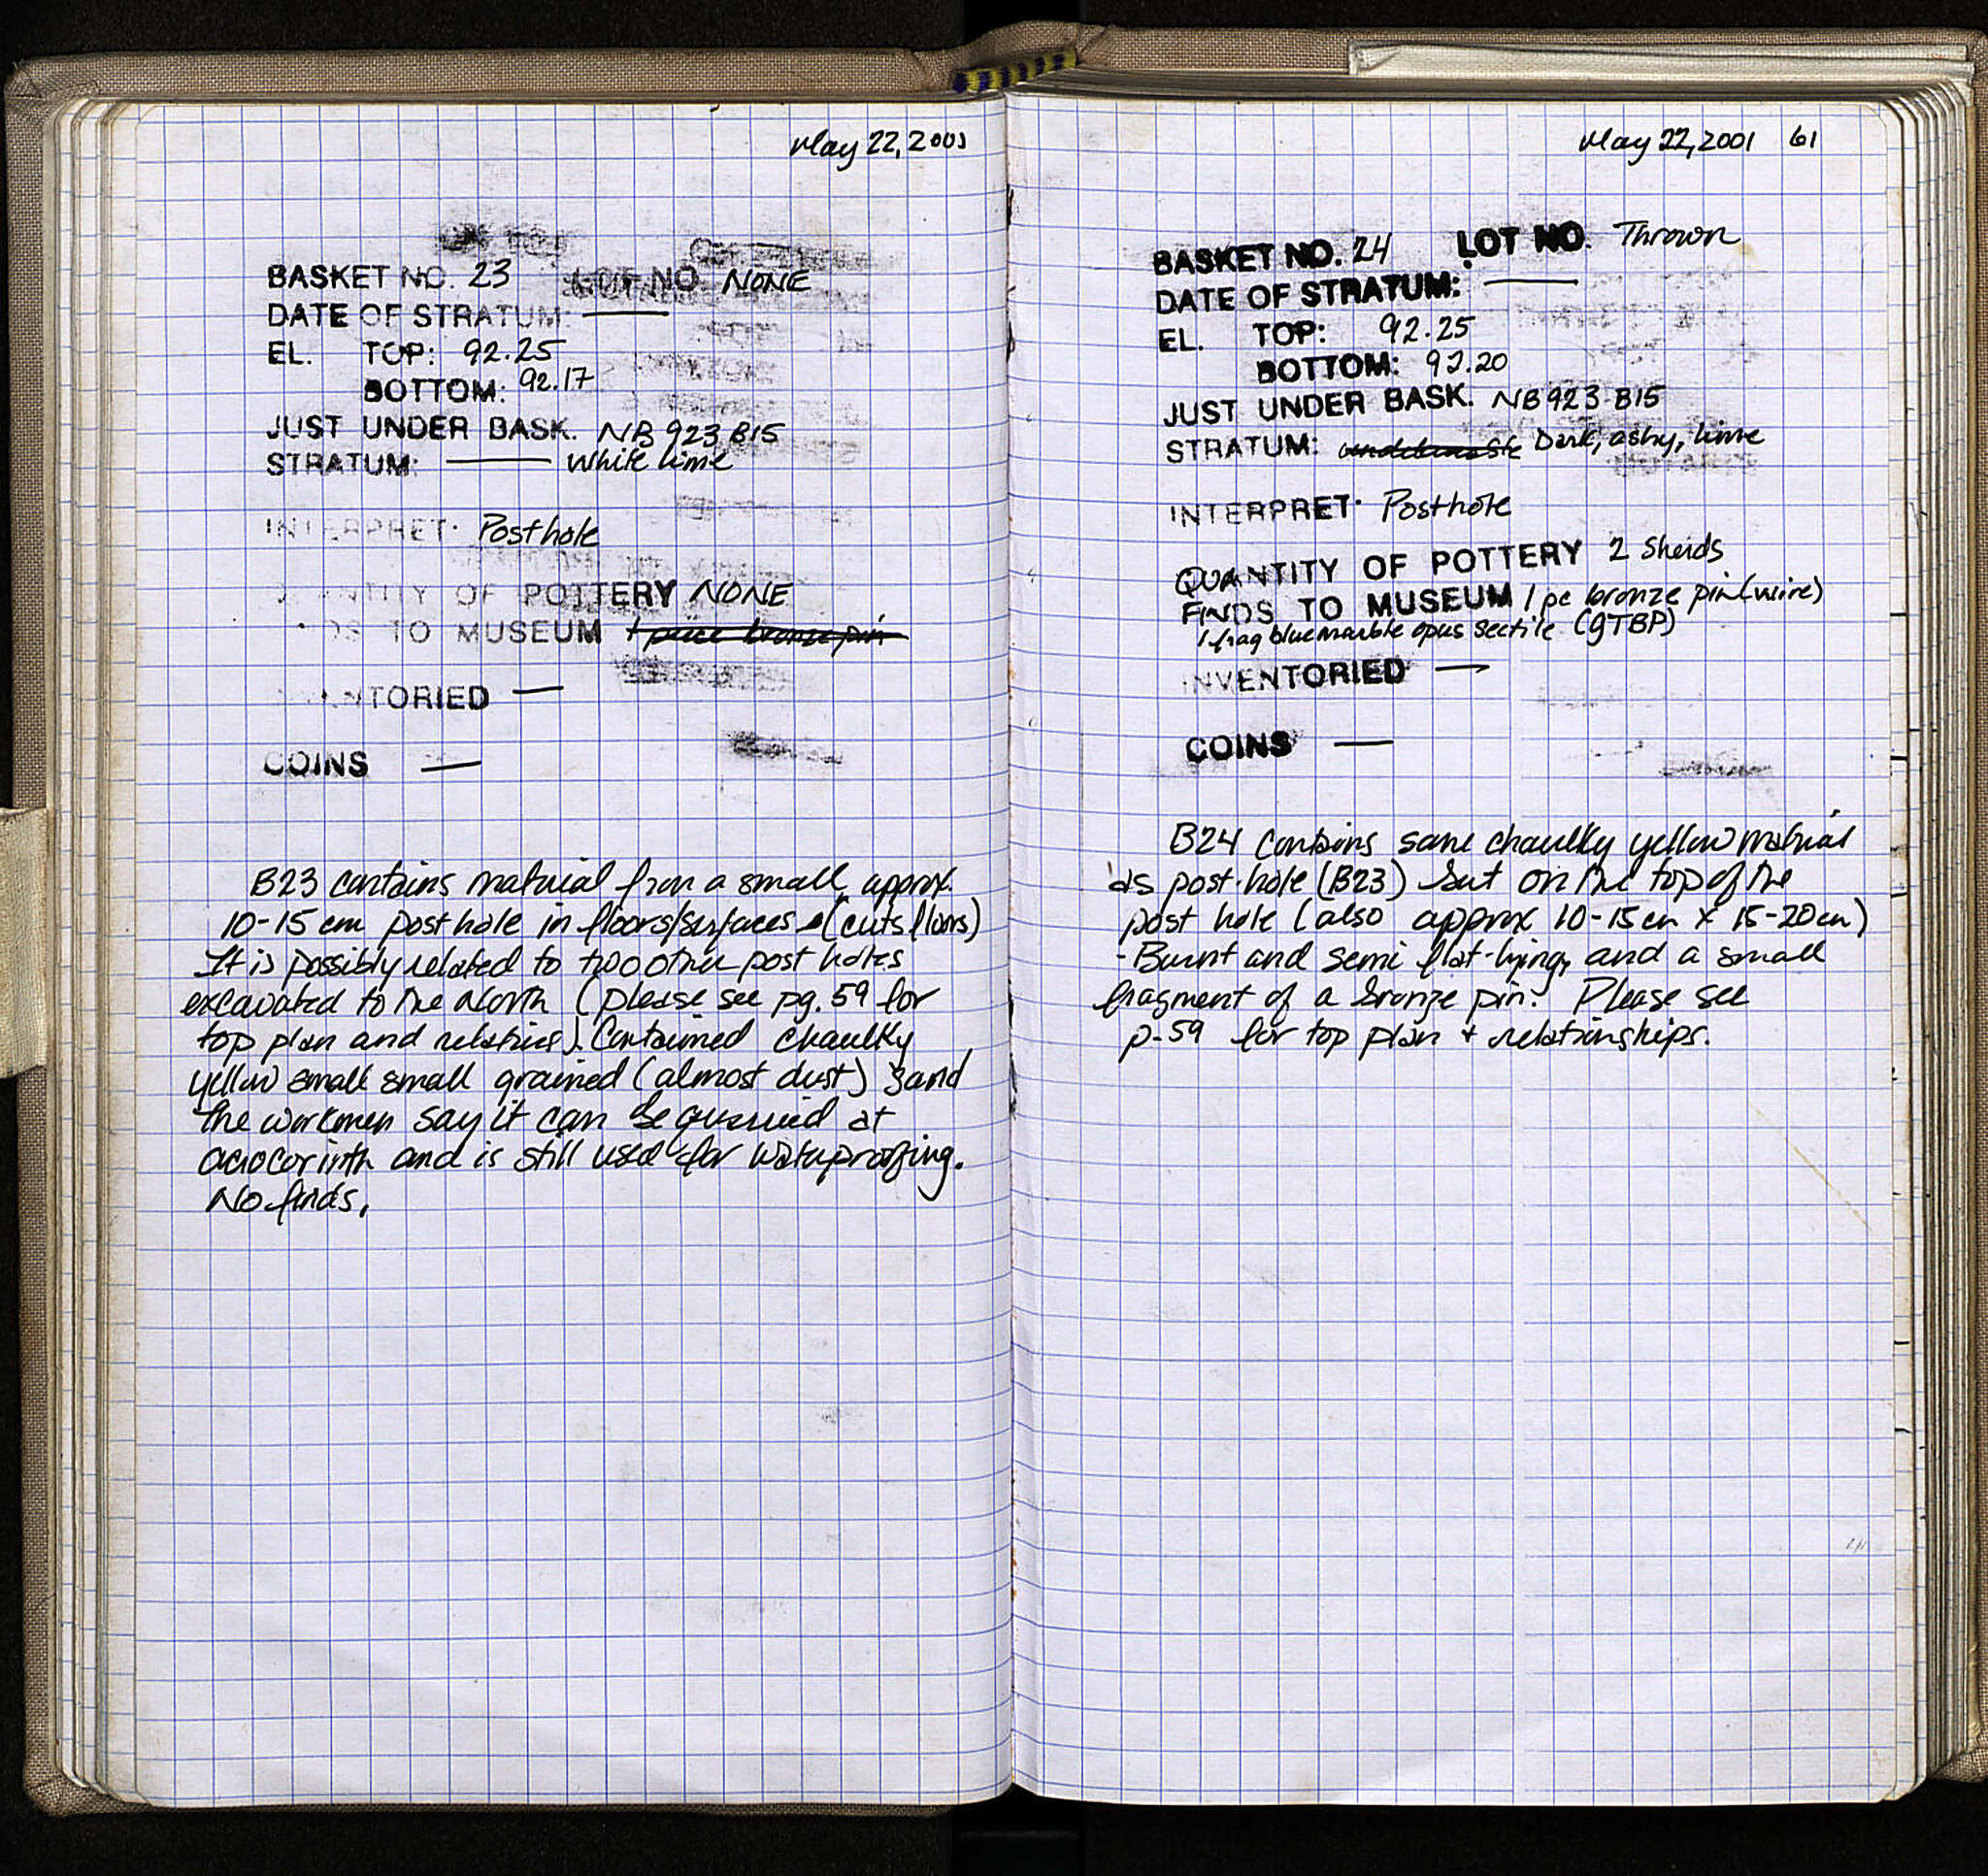 May 22, 2001
BASKET NO. 23 LOT NO. NONE
DATE OF STRATUM: —
EL. TOP: 92.25
BOTTOM: 92.17
JUST UNDER BASK. NB 923 B15
STRATUM: — white lime
INTERPRET. Posthole
QUANTITY OF POTTERY NONE
FINDS TO MUSEUM 1 piece bronze pin
INVENTORIED —
COINS —
B23 contains material from a small approx.
10-15 cm post hole in floors/surfaces (cuts floors)
It is possibly related to two other post holes
excavated to the North (please see pg. 59 for
top plan and relations). Contained chaulky
yellow small small grained (almost dust) sand
the workmen say it can be quarried at
acrocorinth and is still used for waterproofing.
No finds.
May 22, 2001 61
BASKET NO. 24 LOT NO. Thrown
DATE OF STRATUM: —
EL. TOP: 92.25
BOTTOM: 92.20
JUST UNDER BASK. NB 923 B15
STRATUM: Dark, ashy, lime
INTERPRET. Posthole
QUANTITY OF POTTERY 2 Sherds
FINDS TO MUSEUM 1 pc bronze pin (wire)
1 frag blue marble opus sectile (gTBP)
INVENTORIED —
COINS —
B24 contains same chaulky yellow material
as post-hole (B23) but on the top of the
post hole (also approx 10-15 cm x 15-20 cm)
- Burnt and semi flat-lying, and a small
fragment of a bronze pin. Please see
p. 59 for top plan + relationships.